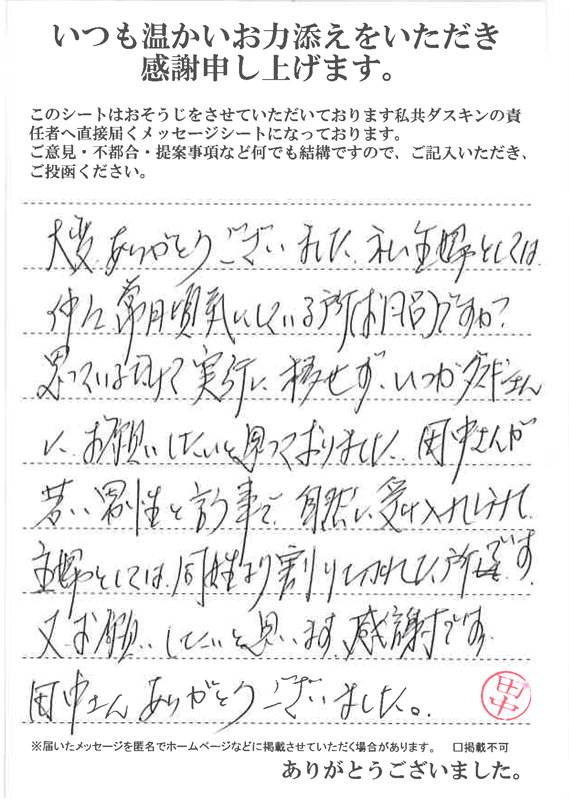 いつも温かいお力添えをいただき
感謝申し上げます。
このシートはおそうじをさせていただいております私共ダスキンの責
任者へ直接届くメッセージシートになっております。
ご意見・不都合・提案事項など何でも結構ですので、ご記入いただき、
ご投函ください。
大変ありがとうございました、私し主婦としては
仲々常日頃気にしている所(お风呂)ですが?
思っているだけで実行に移せず、いつかダスキンさん
に、お願いしたいと思っておりました。田中さんが
若い男性と言う事で、自然に受け入れられて
主婦としては、同姓より割り切れた所です。
又お願いしたいと思います、感謝です。
田中さんありがとうございました。
田中
※届いたメッセージを匿名でホームページなどに掲載させていただく場合があります。 □掲載不可
ありがとうございました。